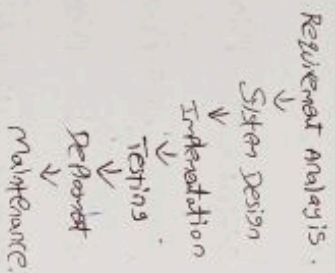 Requirement Analayis.
↓
System Design
↓
Implementation
↓
Testing.
↓
Deploomist
↓
Maintenance.